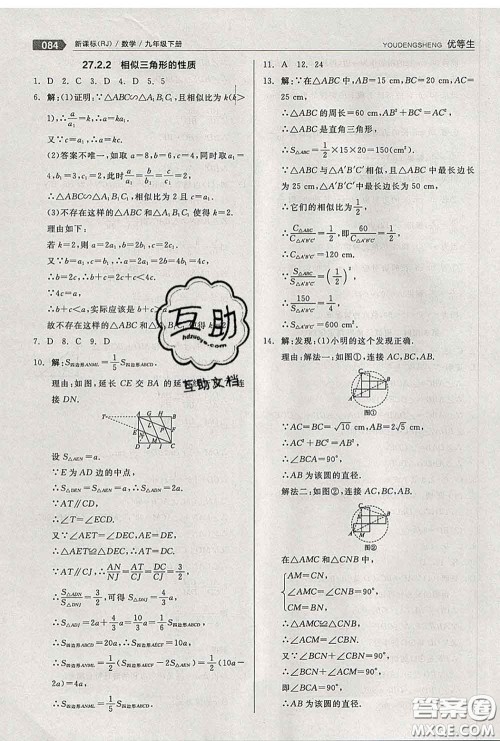 084 新课标(RJ)/数学/九年级下册
YOUDENGSHENG 优等生
27.2.2 相似三角形的性质
1. D 2. C 3. D 4. D 5. 5
6. 解:(1)证明:∵△ABC∽△A₁B₁C₁,且相似比为k(k>
1),∴a/a₁=k,∴a=ka₁.
又∵c₁=a,∴a=kc₁.
(2)答案不唯一,如取a=8,b=6,c=4,同时取a₁
=4,b₁=3,c₁=2.此时
∴△ABC∽△A₁B₁C₁且c=a₁.
(3)不存在这样的△ABC和△A₁B₁C₁使得k=2.
理由如下:
若k=2,则a=2a₁,b=2b₁,c=2c₁.
又∵b=a₁,c=b₁,∴a=2a₁=2b=4b₁=4c,
∴b=2c,∴b+c=2c+c<4c.
∵4c=a,
∴b+c<a,实际应该是b+c>a,
故不存在这样的△ABC和△A₁B₁C₁
7. D 8. C 9. D
10. 解:S四边形ANML=1/5 S四边形ABCD.
理由:如图,延长CE交BA的延
接DN.
设S△AEN=a.
∵E为AD边上的中点,
∴S△DEN=S△AEN=a,∴S△ADN=2a.
∵AT∥CD,
∴∠T=∠ECD.
∵∠AET=∠DEC,AE=DE,
∴△AET≌△DEC,∴AT=CD.
∵AT∥CJ,∴AT/CJ=AN/NJ=DC/CJ=3/2,
∴S△ADN/S△DNJ=3/2,可得S△DNJ=4/3a.
∴S△ADJ=2a+4/3a=10/3a=1/6 S四边形ABCD.
∴S四边形ABCD=20a.
又∵S四边形ANML=1/2(S四边形AECF-2S△AEN)=1/2(10a
-2a)=4a,∴S四边形ANML=1/5 S四边形ABCD.
11. A 12. 24
13. 解:∵在△ABC中,AB=15 cm,BC=20 cm,AC=
25 cm,
∴△ABC的周长=60 cm,AB²+BC²=AC²,
∴△ABC是直角三角形,
∴S△ABC=1/2×15×20=150(cm²).
∵△ABC与△A′B′C′相似,△ABC中最长边长
为25 cm,△A′B′C′中最长边长为50 cm,
∴它们的相似比为1/2,
∴C△ABC/C△A′B′C′=1/2,即60/C△A′B′C′=1/2,
∴C△A′B′C′=120 cm.
∵S△ABC/S△A′B′C′=(1/2)²,
∴150/S△A′B′C′=1/4,
∴S△A′B′C′=600 cm².
14. 解:发现:(1)小明的这个发现正确.
理由:解法一:如图①,连接AC,BC,AB.
图①
∵AC=BC=√10 cm,AB=2√5 cm,
∴AC²+BC²=AB²,
∴∠ACB=90°,
∴AB为该圆的直径.
解法二:如图②,连接AC,BC,AB.
图②
在△AMC和△CNB中,
AM=CN,
∠AMC=∠CNB=90°,
MC=NB,
∴△AMC≌△CNB,
∴∠ACM=∠CBN.
又∵∠CBN+∠BCN=90°,
∴∠ACM+∠BCN=90°,
即∠ACB=90°,
∴AB为该圆的直径.
互助
hdzuoye.com
互助文档
答案圈
MXQE.COM